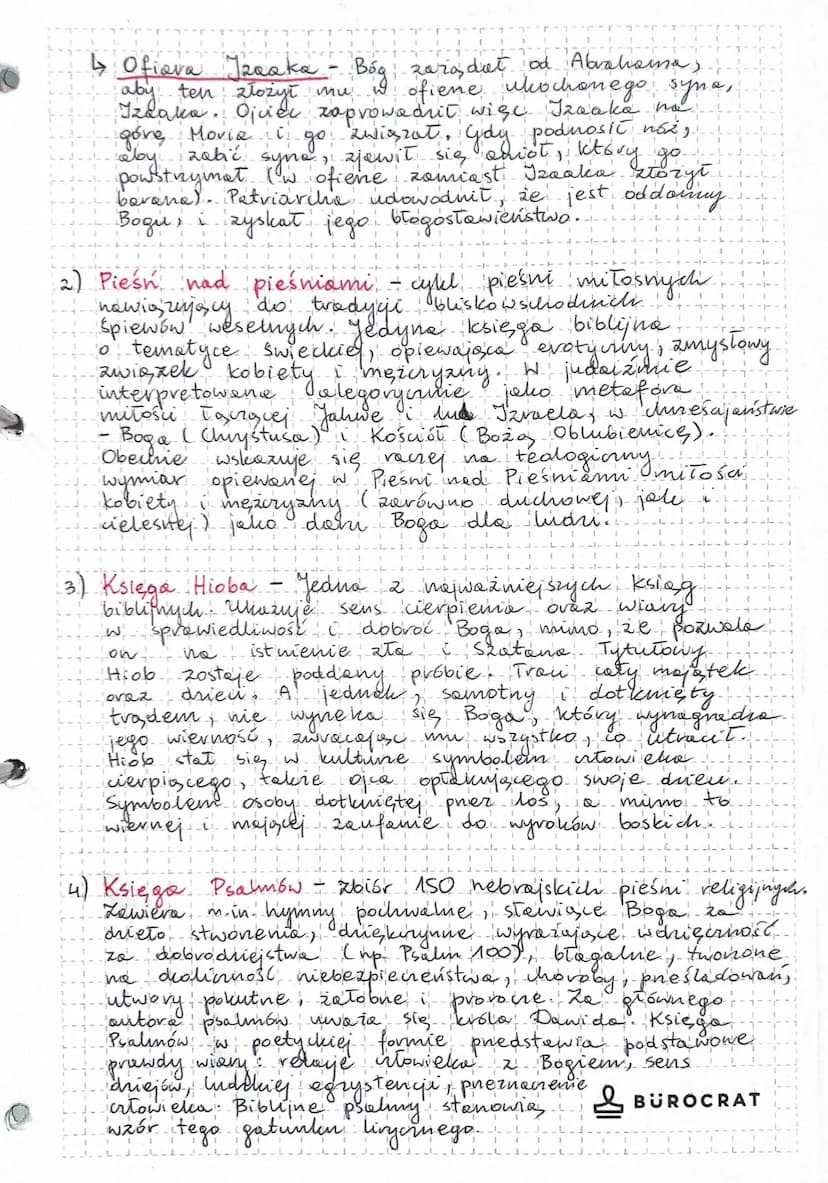 ↳ Ofiara Izaaka - Bóg zażądał od Abrahama,
aby ten złożył mu w ofierze ukochanego syna,
Izaaka. Ojciec zaprowadził więc Izaaka na
górę Moria i go związał. Gdy podnosił nóż,
aby zabić syna, zjawił się anioł, który go
powstrzymał (w ofierze zamiast Izaaka złożył
barana). Patriarcha udowodnił, że jest oddany
Bogu, i zyskał jego błogosławieństwo.
2) Pieśń nad pieśniami - cykl pieśni miłosnych
nawiązujący do tradycji bliskowschodnich
śpiewów weselnych. Jedyna księga biblijna
o tematyce świeckiej, opiewająca erotyczny, zmysłowy
związek kobiety i mężczyzny. W judaizmie
interpretowana alegorycznie jako metafora
miłości łączącej Jahwe i lud Izraela, w chrześcijaństwie
- Boga (Chrystusa) i Kościół (Bożą Oblubienicę).
Obecnie wskazuje się raczej na teologiczny
wymiar opiewanej w Pieśni nad Pieśniami miłości
kobiety i mężczyzny (zarówno duchowej, jak i
cielesnej) jako daru Boga dla ludzi.
3) Księga Hioba - Jedna z najważniejszych ksiąg
biblijnych. Ukazuje sens cierpienia oraz wiary
w sprawiedliwość i dobroć Boga, mimo, że pozwala
on na istnienie zła i Szatana. Tytułowy
Hiob zostaje poddany próbie. Traci cały majątek
oraz dzieci. A jednak, samotny i dotknięty
trądem, nie wyrzeka się Boga, który wynagradza
jego wierność, zwracając mu wszystko, co utracił.
Hiob stał się w kulturze symbolem człowieka
cierpiącego, także ojca opłakującego swoje dzieci.
Symbolem osoby dotkniętej przez los, a mimo to
wiernej i mającej zaufanie do wyroków boskich.
4) Księga Psalmów - zbiór 150 hebrajskich pieśni religijnych.
Zawiera m.in. hymny pochwalne, sławiące Boga za
dzieło stworzenia, dziękczynne wyrażające wdzięczność
za dobrodziejstwa (np. Psalm 100), błagalne, tworzone
na okoliczność niebezpieczeństwa, choroby, prześladowań,
utwory pokutne, żałobne i prorocze. Za głównego
autora psalmów uważa się króla Dawida. Księga
Psalmów w poetyckiej formie przedstawia podstawowe
prawdy wiary: relacje człowieka z Bogiem, sens
dziejów, ludzkiej egzystencji, przeznaczenie
człowieka. Biblijne psalmy stanowią
wzór tego gatunku lirycznego.
BÜROCRAT